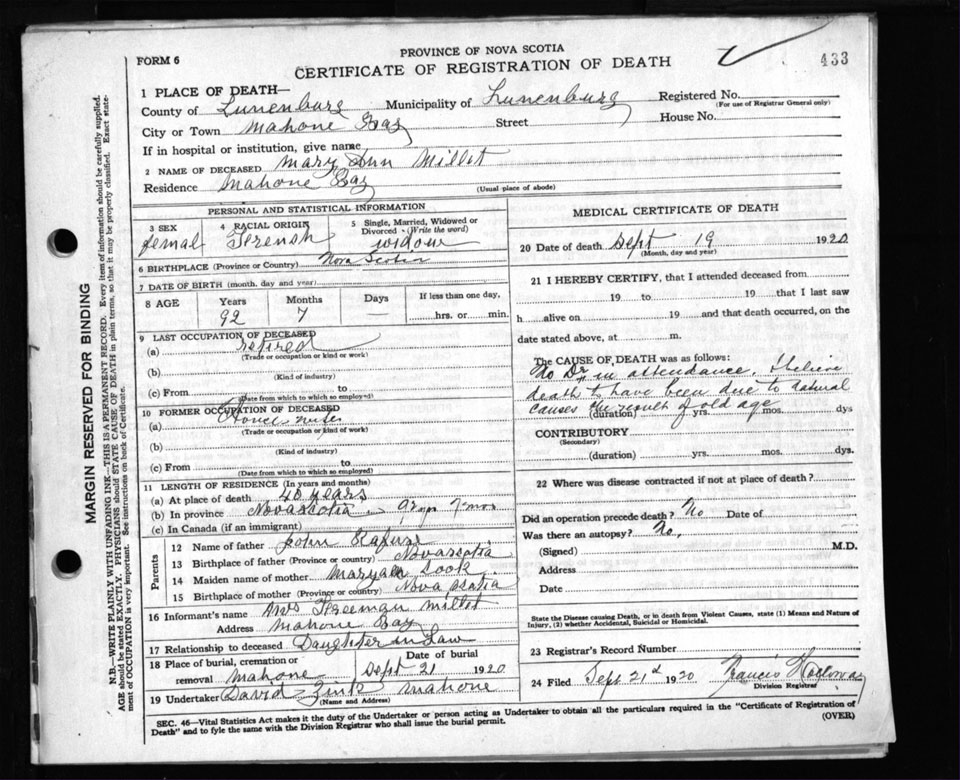 433
PROVINCE OF NOVA SCOTIA
FORM 6
CERTIFICATE OF REGISTRATION OF DEATH
1 PLACE OF DEATH—
County of Lunenburg Municipality of Lunenburg Registered No.
(For use of Registrar General only)
City or Town Mahone Bay Street House No.
If in hospital or institution, give name
2 NAME OF DECEASED Mary Ann Millet
Residence Mahone Bay
(Usual place of abode)
PERSONAL AND STATISTICAL INFORMATION
3 SEX 4 RACIAL ORIGIN 5 Single, Married, Widowed or
Divorced - (Write the word)
femal French widow
6 BIRTHPLACE (Province or Country) Nova Scotia
7 DATE OF BIRTH (month, day and year)
8 AGE Years Months Days If less than one day,
92 7 — hrs. or min.
9 LAST OCCUPATION OF DECEASED
(a) retired
(Trade or occupation or kind of work)
(b)
(Kind of industry)
(c) From to
(Date from which to which so employed)
10 FORMER OCCUPATION OF DECEASED
(a)
(Trade or occupation or kind of work)
(b)
(Kind of industry)
(c) From to
(Date from which to which so employed)
11 LENGTH OF RESIDENCE (In years and months)
(a) At place of death 40 years
(b) In province Novascotia 92 yrs 7 mos
(c) In Canada (if an immigrant)
Parents
12 Name of father John
13 Birthplace of father (Province or country) Novascotia
14 Maiden name of mother Maryann
15 Birthplace of mother (Province or country) Nova Scotia
16 Informant's name Mrs Freeman Millet
Address Mahone Bay
17 Relationship to deceased Daughter in Law
18 Place of burial, cremation or removal Date of burial
Mahone Sept 21 1920
19 Undertaker David Zink Mahone
(Name and Address)
MEDICAL CERTIFICATE OF DEATH
20 Date of death Sept 19 1920
(Month, day and year)
21 I HEREBY CERTIFY, that I attended deceased from
19 to 19 that I last saw
h alive on 19 and that death occurred, on the
date stated above, at m.
The CAUSE OF DEATH was as follows:
No Dr in attendance. I believe
death to have been due to natural
causes the result of old age
(duration) yrs. mos. dys
CONTRIBUTORY
(Secondary)
(duration) yrs. mos. dys
22 Where was disease contracted if not at place of death?
Did an operation precede death? No Date of
Was there an autopsy? No.
(Signed) M.D.
Address
Date
State the Disease causing Death, or in death from Violent Causes, state (1) Means and Nature of
Injury, (2) whether Accidental, Suicidal or Homicidal.
23 Registrar's Record Number
24 Filed Sept 21st 1920 Francis
Division Registrar
SEC. 46—Vital Statistics Act makes it the duty of the Undertaker or person acting as Undertaker to obtain all the particulars required in the "Certificate of Registration of
Death" and to fyle the same with the Division Registrar who shall issue the burial permit. (OVER)
MARGIN RESERVED FOR BINDING
N.B.—WRITE PLAINLY WITH UNFADING INK—THIS IS A PERMANENT RECORD. Every item of information should be carefully supplied.
AGE should be stated EXACTLY. PHYSICIANS should STATE CAUSE OF DEATH in plain terms, so that it may be properly classified. Exact state-
ment of OCCUPATION is very important. See instructions on back of Certificate.